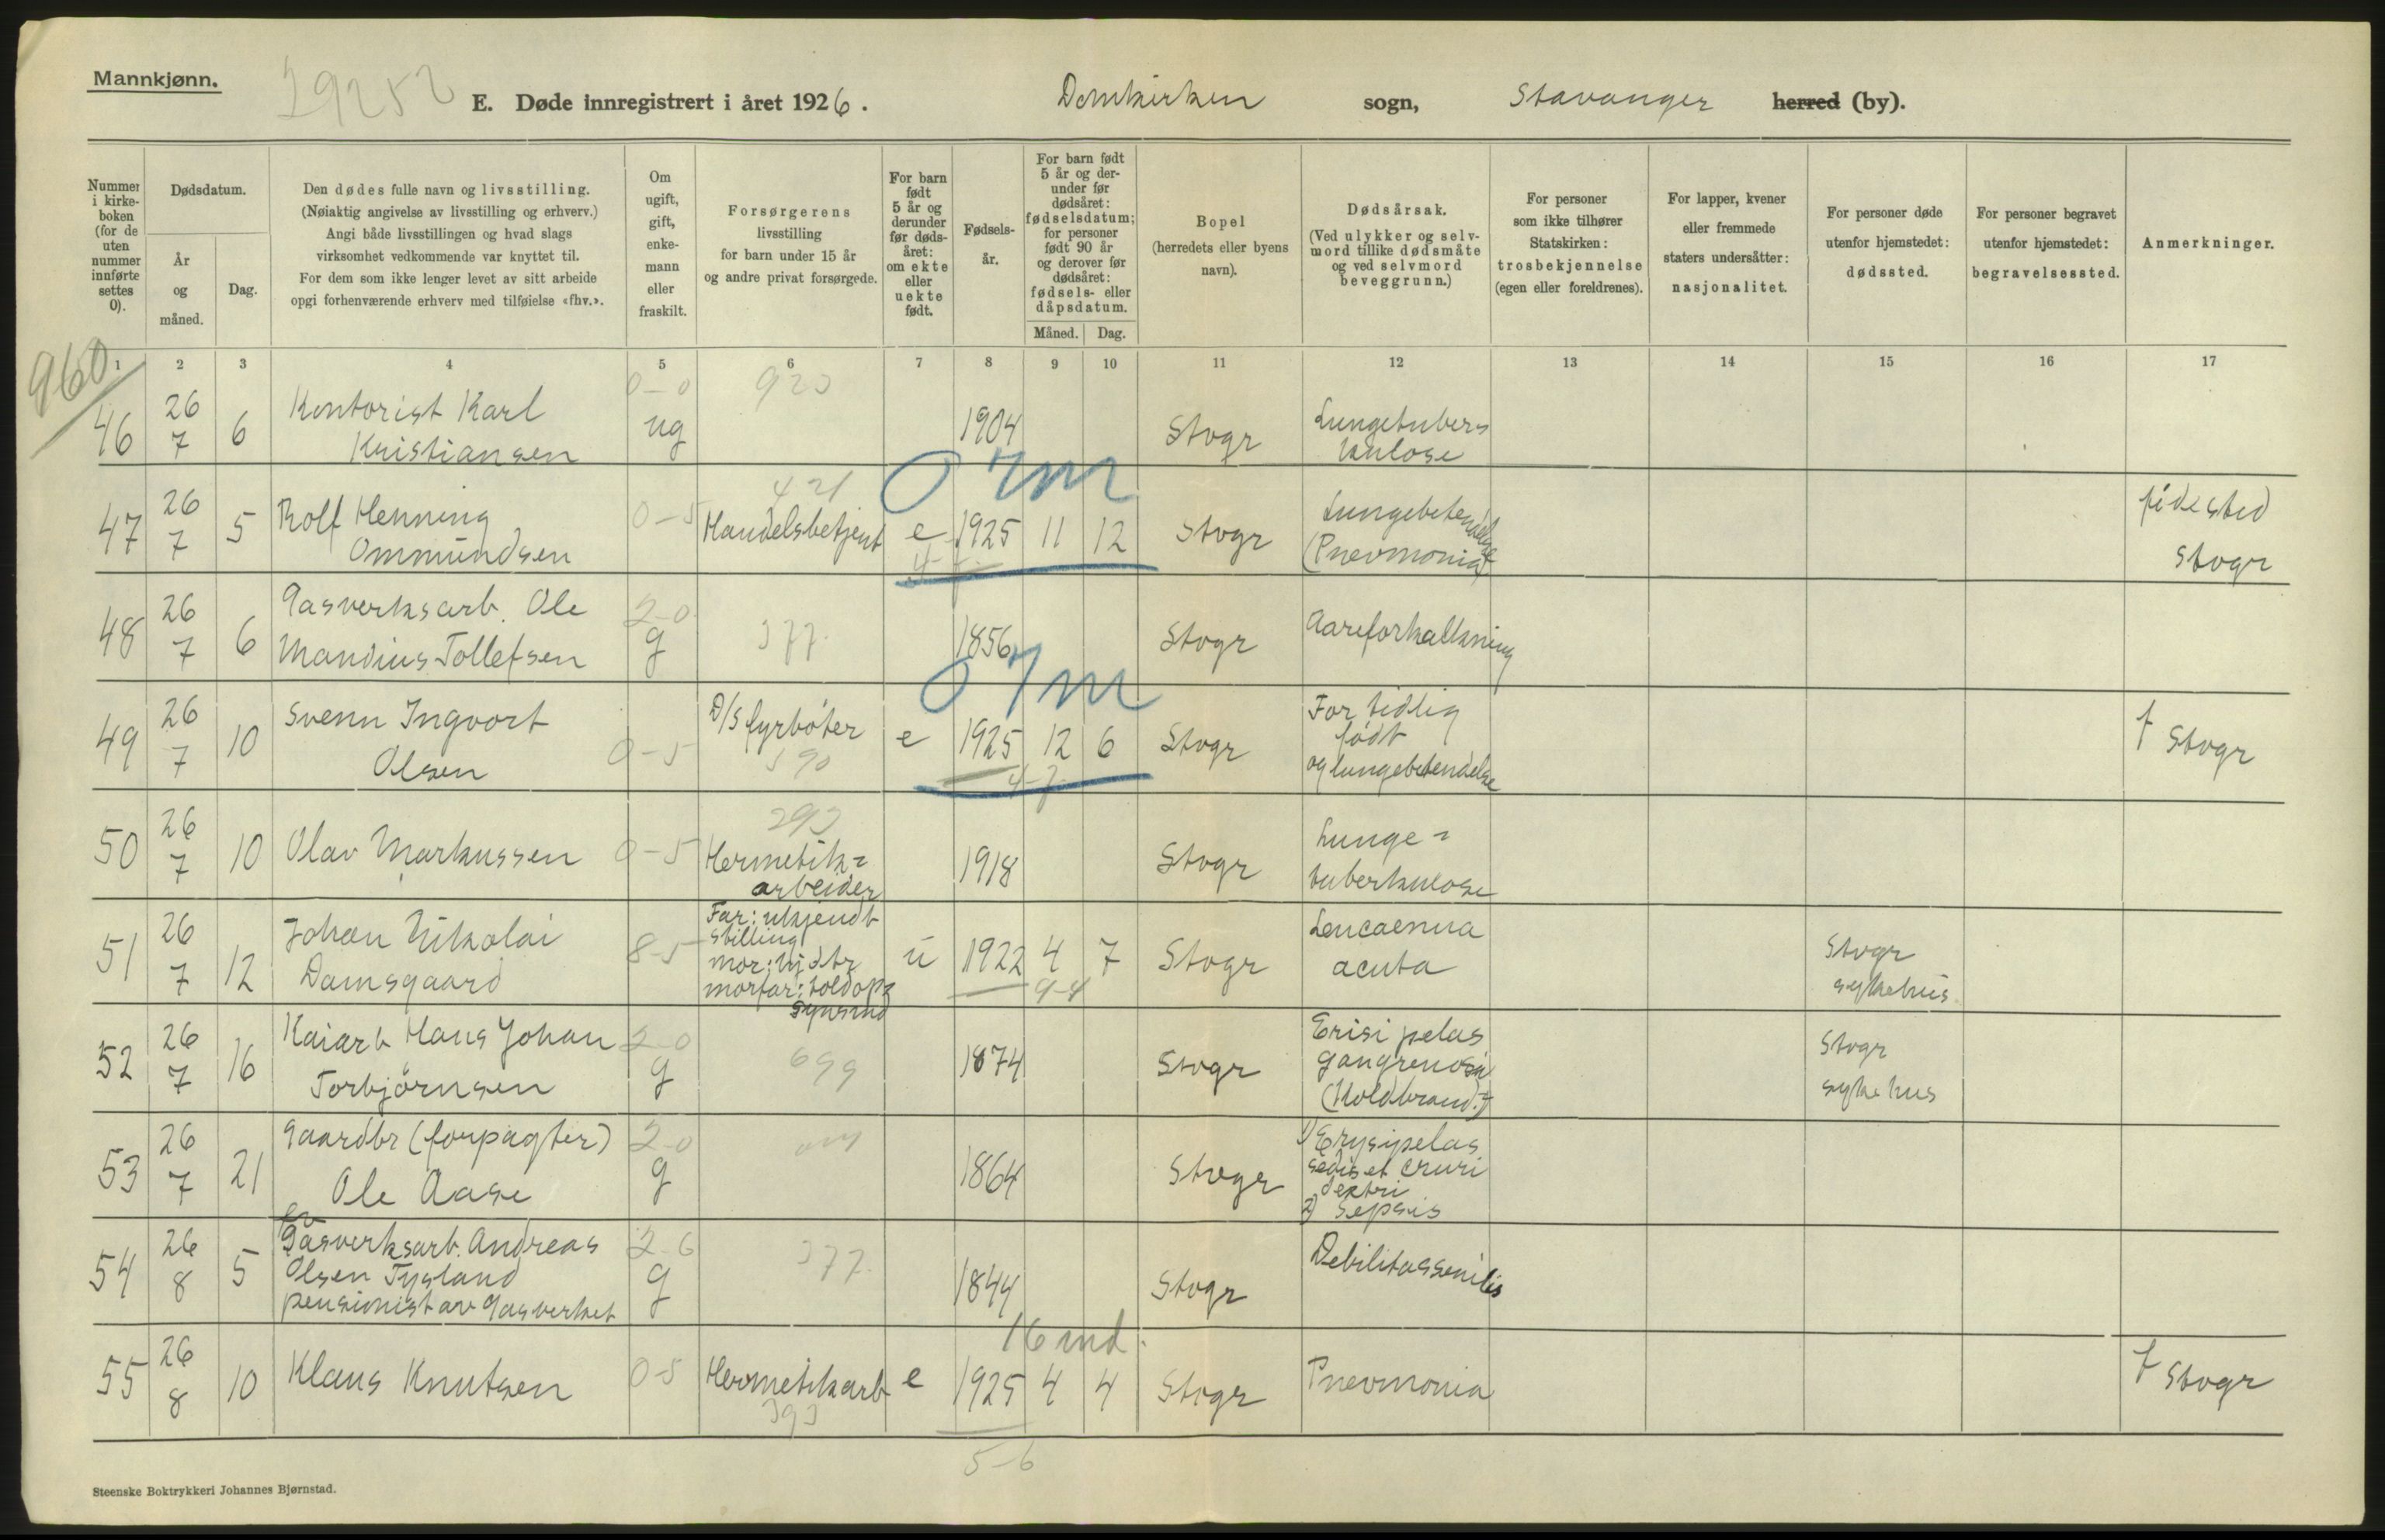 Mannkjønn.
29252
E. Døde innregistrert i året 1926. Domkirken sogn, Stavanger herred (by).
Nummer i kirkeboken (for de uten nummer innførte settes 0).
Dødsdatum.
År og måned.
Dag.
Den dødes fulle navn og livsstilling.
(Nøiaktig angivelse av livsstilling og erhverv.)
Angi både livsstillingen og hvad slags
virksomhet vedkommende var knyttet til.
For dem som ikke lenger levet av sitt arbeide
opgi forhenværende erhverv med tilføielse «fhv.».
Om ugift, gift, enkemann eller fraskilt.
Forsørgerens
livsstilling
for barn under 15 år
og andre privat forsørgede.
For barn født 5 år og derunder før dødsåret: om ekte eller uekte født.
Fødselsår.
For barn født 5 år og derunder før dødsåret: fødselsdatum; for personer født 90 år og derover før dødsåret: fødsels- eller dåpsdatum.
Måned. Dag.
Bopel
(herredets eller byens
navn).
Dødsårsak.
(Ved ulykker og selvmord tillike dødsmåte og ved selvmord beveggrunn.)
For personer
som ikke tilhører
Statskirken:
trosbekjennelse
(egen eller foreldrenes).
For lapper, kvener
eller fremmede
staters undersåtter:
nasjonalitet.
For personer døde
utenfor hjemstedet:
dødssted.
For personer begravet
utenfor hjemstedet:
begravelsessted.
Anmerkninger.
1 2 3 4 5 6 7 8 9 10 11 12 13 14 15 16 17
960
46 26 7 6 Kontorist Karl Kristiansen 0-0 ug 920 1904 Stvgr Lungetuberkulose
0 7m
47 26 7 5 Rolf Henning Ommundsen 0-5 421 Handelsbetjent e 1925 11 12 Stvgr Lungebetendelse (Pnevmonia) födested Stvgr
48 26 7 6 Gasverksarb. Ole Mandius Tollefsen 2-0 g 377. 1856 Stvgr Aareforkalkning
0 7m
49 26 7 10 Svenn Ingvart Olsen 0-5 D/S fyrbøter 590 e 1925 12 6 4-7 Stvgr For tidlig født og lungebetendelse f Stvgr
50 26 7 10 Olav Markussen 0-5 293 Hermetik=arbeider 1918 Stvgr Lunge=tuberkulose
51 26 7 12 Johan Nikolai Damsgaard 8-5 Far: ukjendt stilling mor: hj dtr morfar: toldop=synsmd u 1922 4 7 9-4 Stvgr Leucaemia acuta Stvgr sykehus
52 26 7 16 Kaiarb Hans Johan Torbjörnsen 2-0 g 699 1874 Stvgr Erisipelas gangrenosa (Koldbrand.) Stvgr sykehus
53 26 7 21 Gaardbr (forpagter) Ole Aase 2-0 g 1864 Stvgr 1) Erysipelas sedis et cruri dextri 2) Sepsis
54 26 8 5 Gasverksarb. Andreas Olsen Tysland pensionist av Gasverket 2-6 g 377. 1844 Stvgr Debilitas senilis
16 md.
55 26 8 10 Klaus Knutsen 0-5 Hermetikarb 393 e 1925 4 4 Stvgr Pnevmonia f Stvgr
5-6
Steenske Boktrykkeri Johannes Bjørnstad.